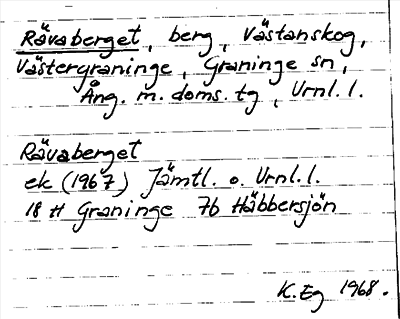 Rävaberget, berg, Västanskog,
Västergraninge, Graninge sn,
Ång. m. doms. tg, Vrnl. l.
Rävaberget
ek (1967) Jämtl. o. Vrnl. l.
18 H Graninge 7b Häbbersjön
K. Eg 1968.